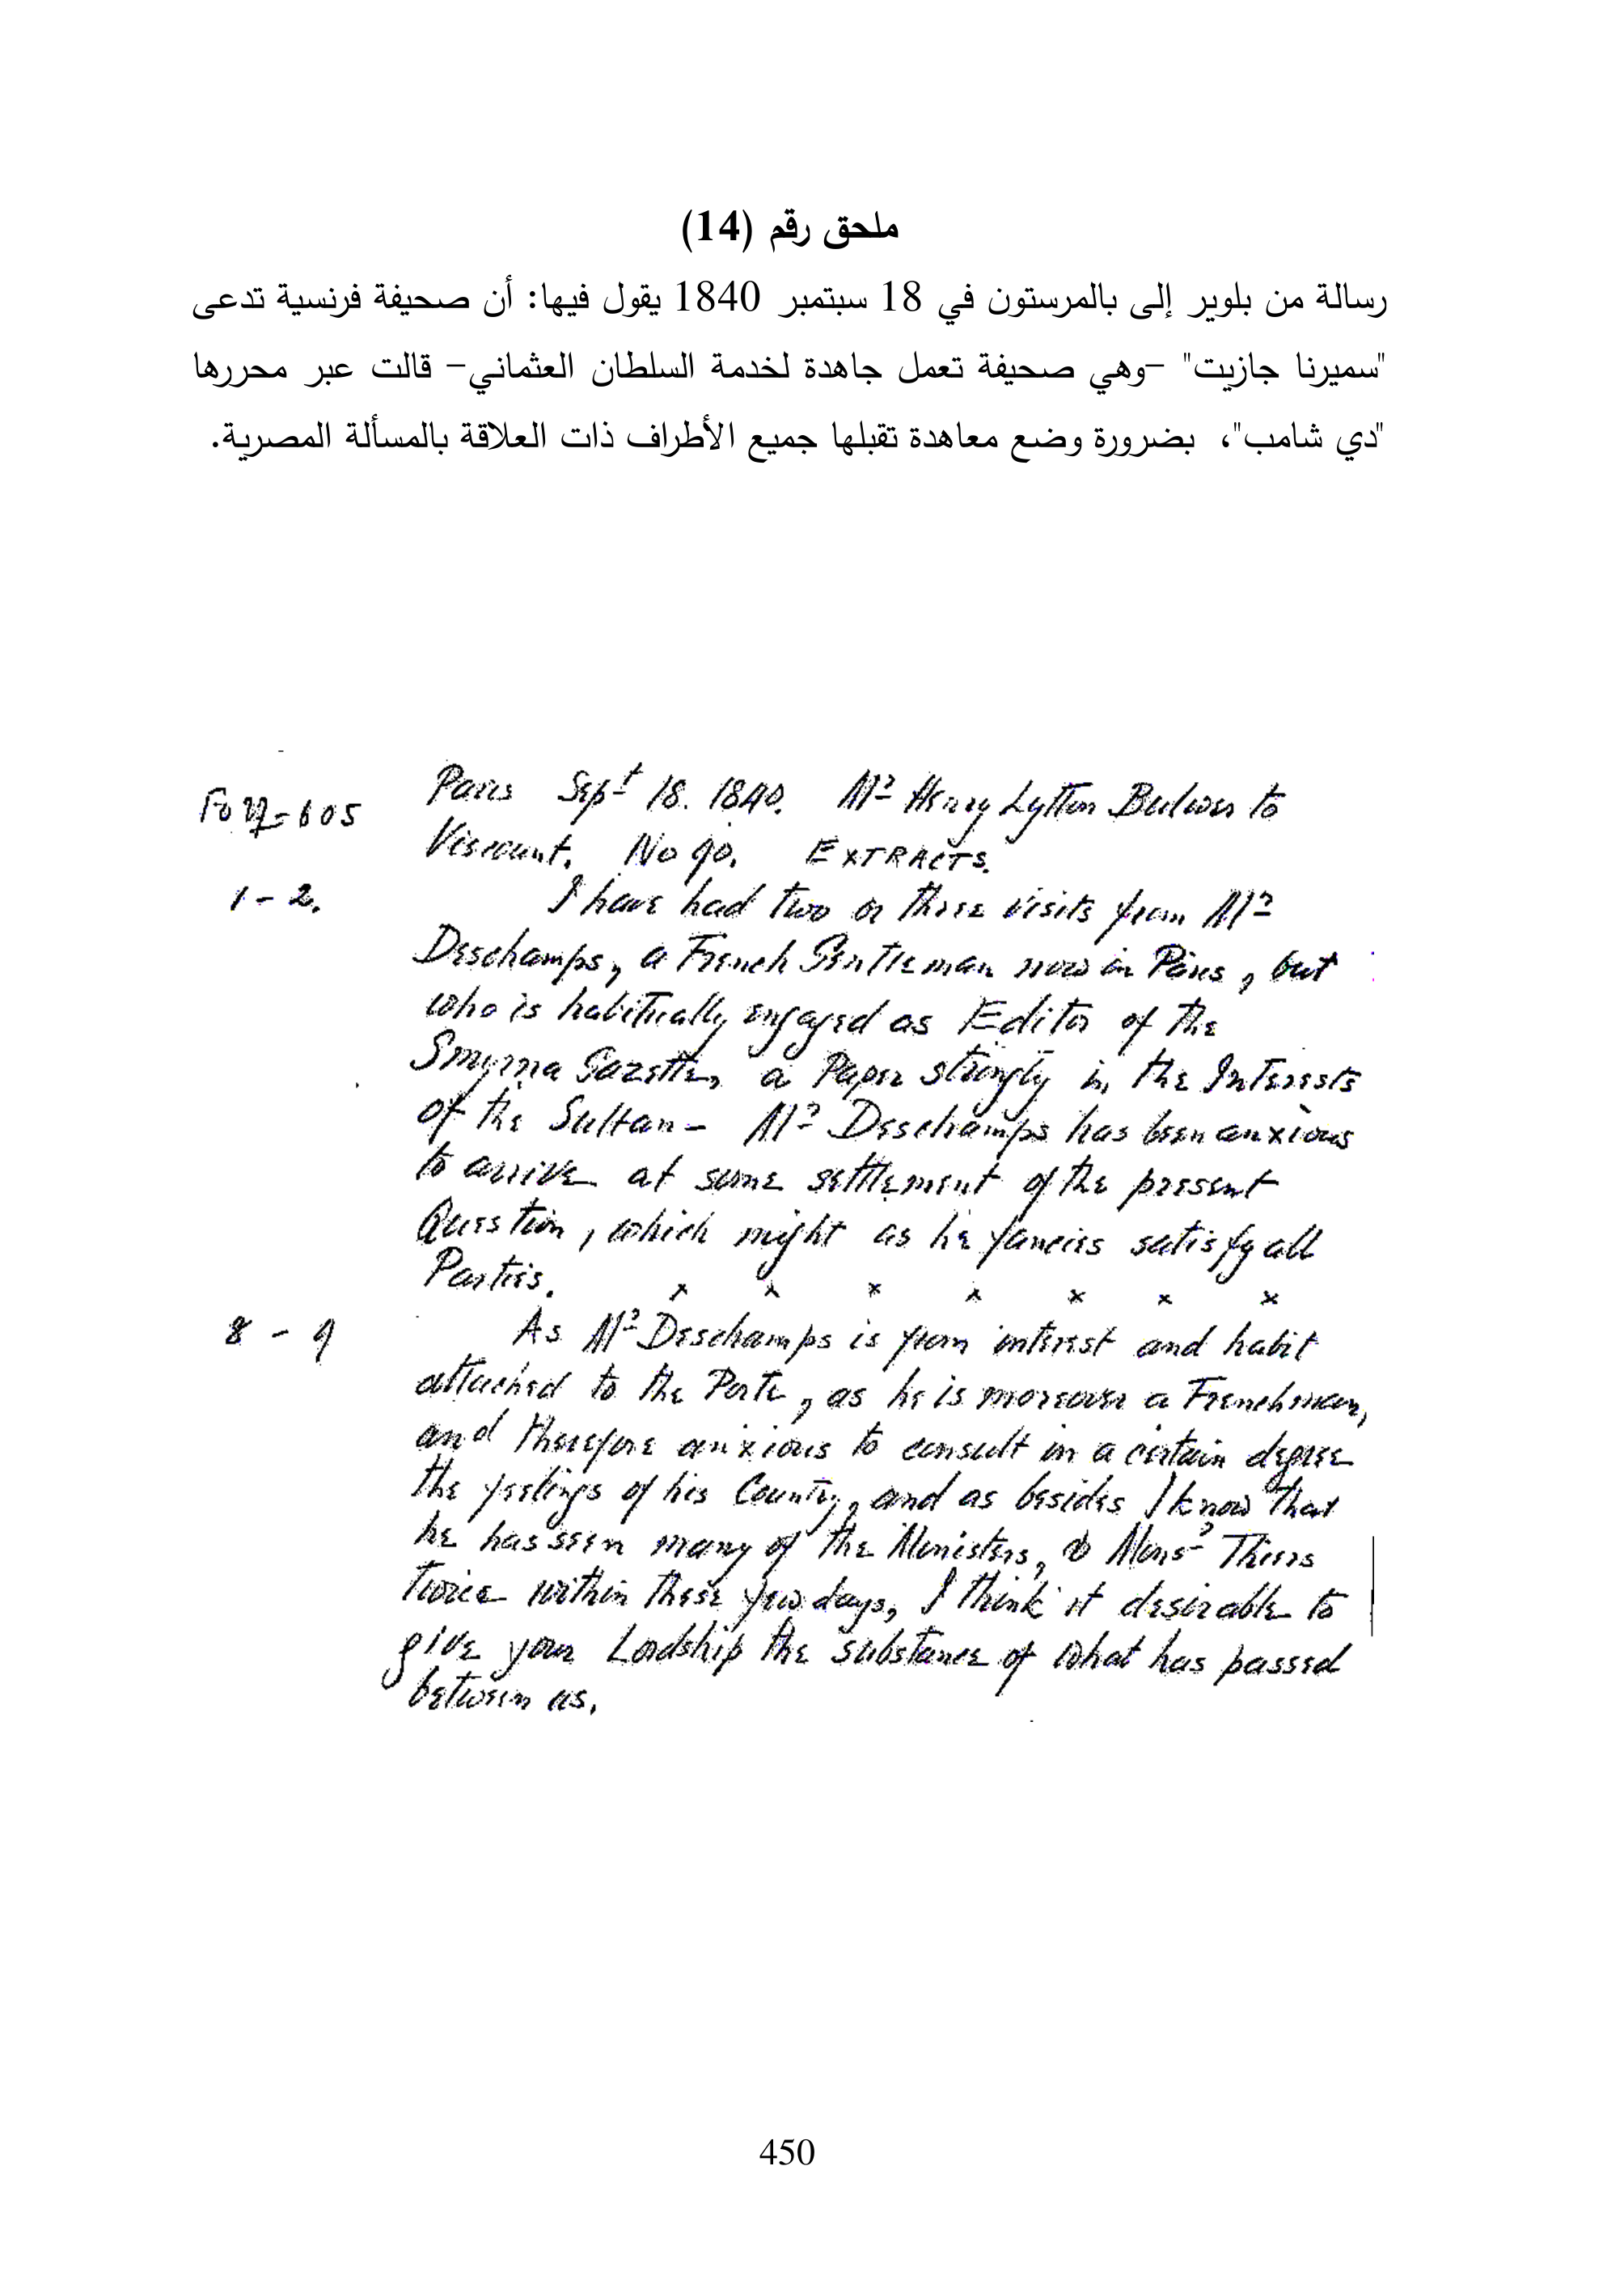 ملحق رقم (14)
رسالة من بلوير إلى بالمرستون في 18 سبتمبر 1840 يقول فيها: أن صحيفة فرنسية تدعى
"سميرنا جازيت" –وهي صحيفة تعمل جاهدة لخدمة السلطان العثماني– قالت عبر محررها
"دي شامب"، بضرورة وضع معاهدة تقبلها جميع الأطراف ذات العلاقة بالمسألة المصرية.
Paris Sept 18. 1840. Mr Henry Lytton Bulwer to
Fo 27=605
Viscount. No 90. EXTRACTS.
1 - 2. I have had two or three visits from Mr
Deschamps, a French Gentleman now in Paris, but
who is habitually engaged as Editor of the
Smyrna Gazette, a Paper strongly in the Interests
of the Sultan - Mr Deschamps has been anxious
to arrive at some settlement of the present
Question, which might as he fancies satisfy all
Parties. x x x x x x x
8 - 9 As Mr Deschamps is from interest and habit
attached to the Porte, as he is moreover a Frenchman,
and therefore anxious to consult in a certain degree
the feelings of his Country, and as besides I know that
he has seen many of the Ministers, & Monsr Thiers
twice within these few days, I think it desirable to
give your Lordship the substance of what has passed
between us.
450